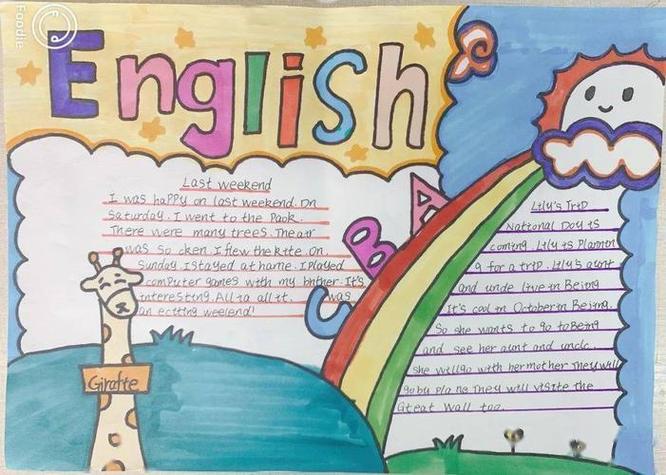 Foodie
English
Last weekend
I was happy on last weekend. On
Saturday. I went to the Paok.
There were many trees. The air
was so cken. I flew the kite. On
Sunday. I stayed at hame. I played
computer games with my bnther. It's
interesting. All ta all it. was
an eciting weelend!
A
B
C
Girafte
Lily's Trip
National Day is
coming. Lily is Plannin
g for a trip. Lily's aunt
and unde live in Beijng
It's cool in October in Beijing.
So she wants to go to Being
and see her aunt and uncle.
She will go with her mother They will
go by Plane They will visite the
Great Wall too.